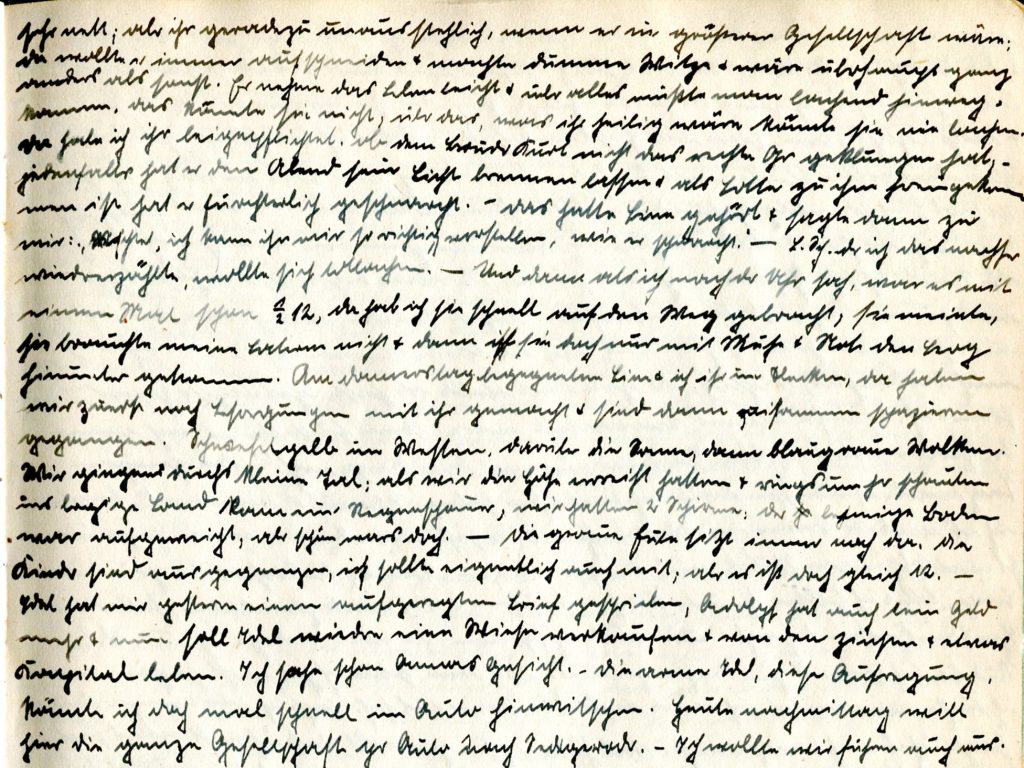 sehr nett; aber ihr geradezu unausstehlich, wenn er in größerer Gesellschaft wäre;
da wollte er immer aufschneiden & machte dumme Witze & wäre überhaupt ganz
anders als sonst. Er nehme das Leben leicht & über alles müßte man lachend hinweg-
kommen, das könnte sie nicht, über das, was ihr heilig wäre könnte sie nie lachen.
Da habe ich ihr beigepflichtet. Ob dem Bruder Kurt nicht das rechte Ohr geklungen hat, -
jedenfalls hat er den Abend sein Licht brennen lassen & als Lotte zu ihm heimgekom
men ist hat er fürchterlich geschnarcht. - Das hatte Line gehört & sagte dann zu
mir: „ ich kann ihn mir so richtig vorstellen, wie er schnarcht." - L. Sch. der ich das nachher
wiedererzählte, wollte sich totlachen. - Und dann als ich nach der Uhr sah, war es mit
einem Mal schon ½ 12, da hab ich sie schnell auf den Weg gebracht, sie meinte,
sie brauchte meine Laterne nicht & dann ist sie doch nur mit Mühe & Not den Berg
hinunter gekommen. Am Donnerstag begegneten Line & ich ihr im Flecken, da haben
wir zuerst noch Besorgungen mit ihr gemacht & sind dann zusammen spazieren
gegangen. Schwefelgelb im Westen, darüber die Sonne, dann blaugraue Wolken.
Wir gingen durchs kleine Tal; als wir die Höhe erreicht hatten & ringsumher schauten
ins bergige Land kam ein Regenschauer, wir hatten 2 Schirme; der lehmige Boden
war aufgeweicht, aber schön wars doch. - Die graue Eule sitzt immer noch da. Die
Kinder sind ausgegangen, ich sollte eigentlich auch mit, aber es ist doch gleich 12. -
Idel hat mir gestern einen aufgeregten Brief geschrieben, Adolph hat auch kein Geld
mehr & nun soll Idel wieder eine Wiese verkaufen & von den Zinsen & etwas
Kapital leben. Ich sehe schon Annas Gesicht. - Die arme Idel, diese Aufregung,
könnte ich doch mal schnell im Auto hinwitschen. Heute nachmittag will
hier die ganze Gesellschaft per Auto nach - Ich wollte wir führen auch aus.